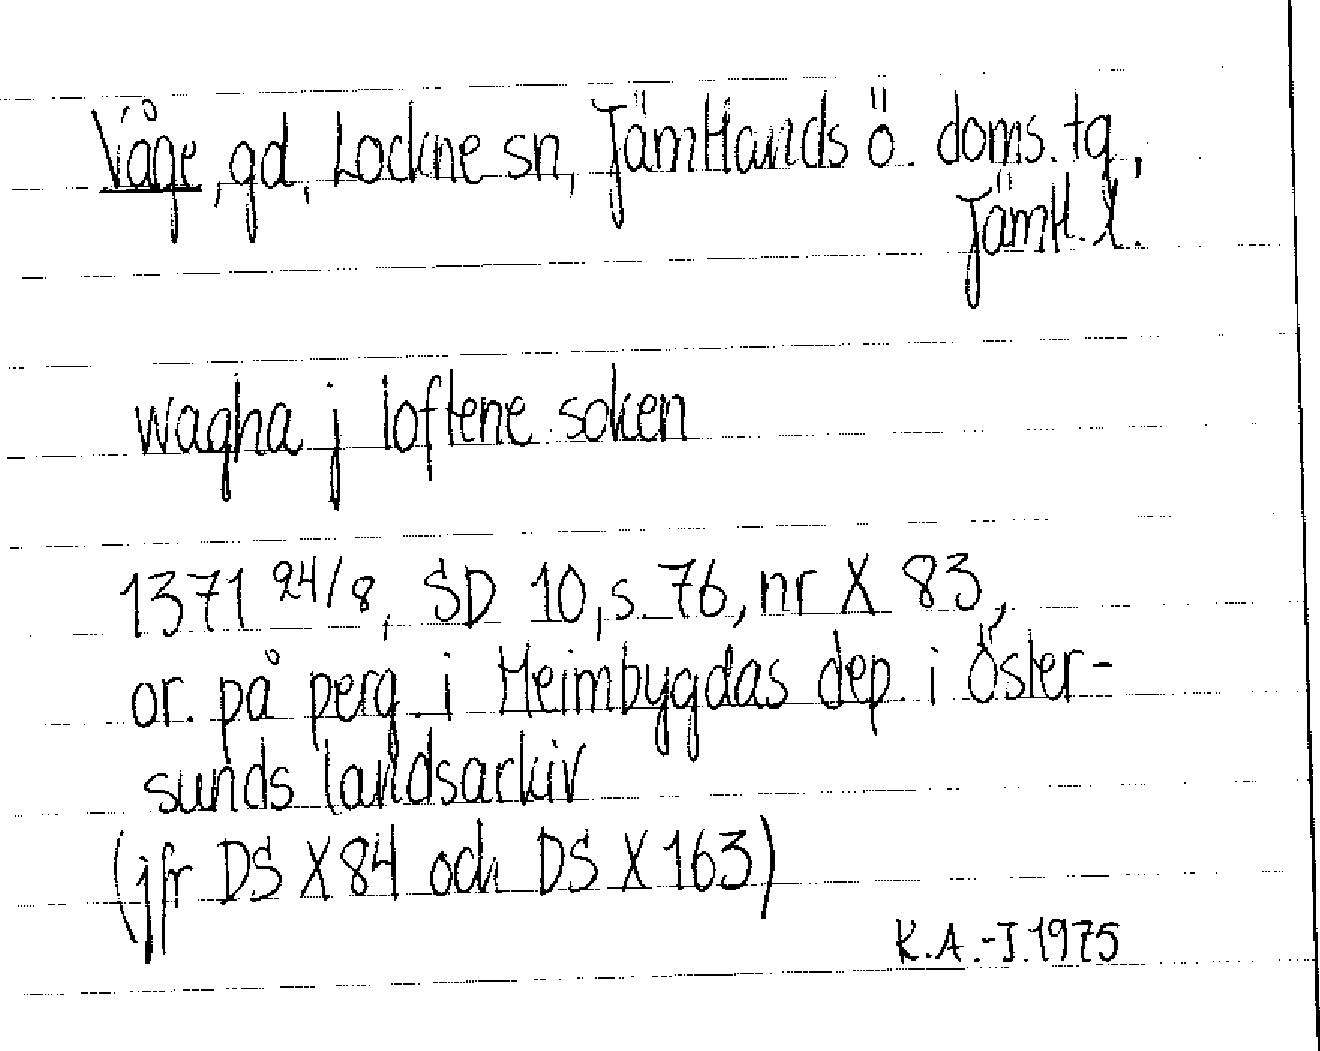 Våge, gd, Lockne sn, Jämtlands ö. doms. tg,
Jämtl. l.
wagha j loftene soken
1371 24/8, SD 10, s. 76, nr X 83,
or. på perg. i Heimbygdas dep. i Öster-
sunds landsarkiv
(jfr DS X 84 och DS X 163)
K.A.-J. 1975